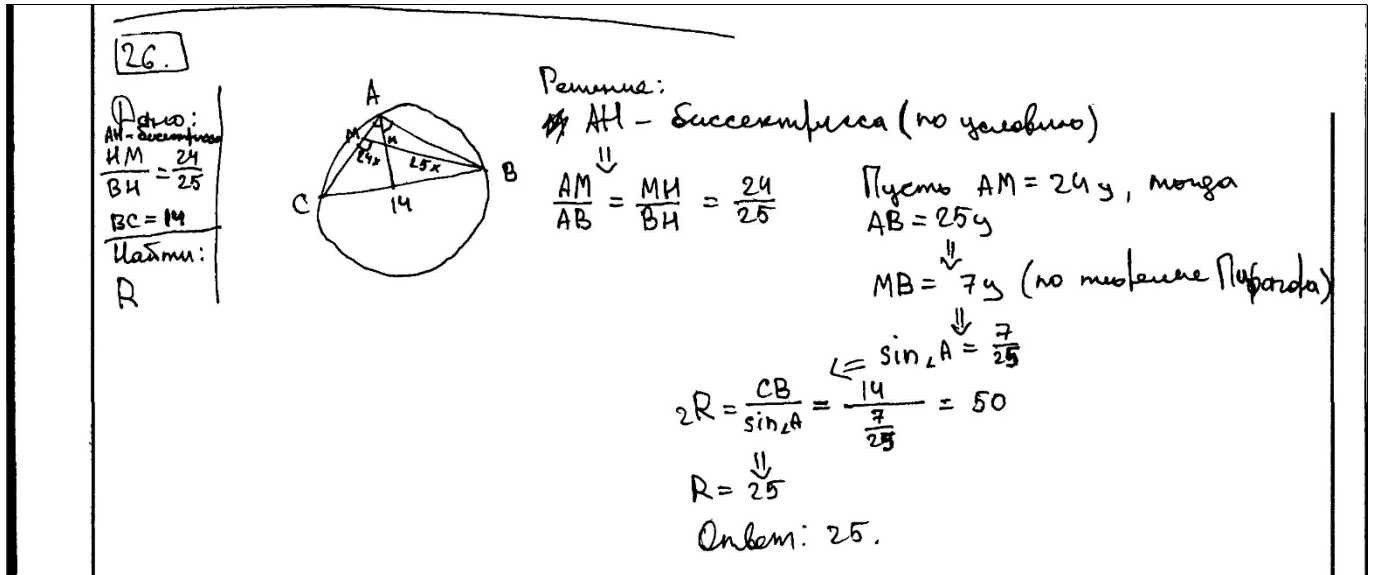 26.
Дано:
AH - биссектриса
HM/BH = 24/25
BC = 14
Найти:
R
A
M
H
24x
25x
B
C
14
Решение:
AH - биссектрисса (по условию)
⇓
AM/AB = MH/BH = 24/25
Пусть AM = 24y, тогда
AB = 25y
⇓
MB = 7y (по теореме Пифагора)
⇓
⇐ sin∠A = 7/25
2R = CB/sin∠A = 14/(7/25) = 50
⇓
R = 25
Ответ: 25.